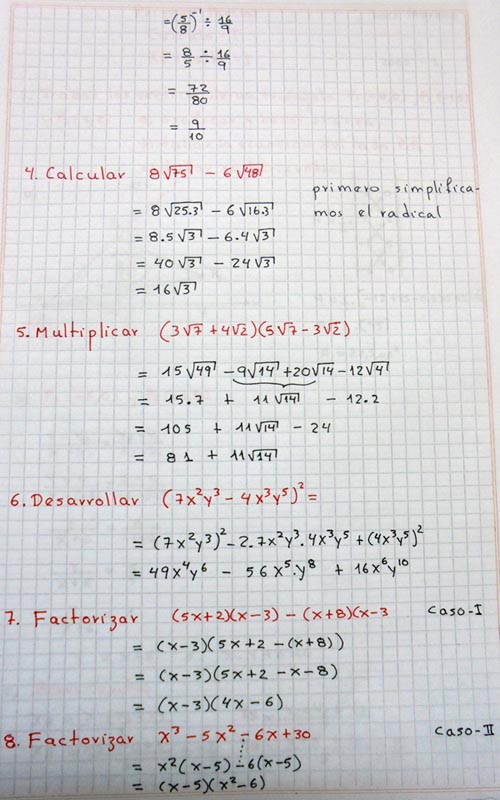 =(5/8)⁻¹ ÷ 16/9
= 8/5 ÷ 16/9
= 72/80
= 9/10
4. Calcular 8√75 - 6√48
primero simplifica-
mos el radical
= 8√25.3 - 6√16.3
= 8.5√3 - 6.4√3
= 40√3 - 24√3
= 16√3
5. Multiplicar (3√7 + 4√2)(5√7 - 3√2)
= 15√49 - 9√14 + 20√14 - 12√4
= 15.7 + 11√14 - 12.2
= 105 + 11√14 - 24
= 81 + 11√14
6. Desarrollar (7x²y³ - 4x³y⁵)² =
= (7x²y³)² - 2.7x²y³.4x³y⁵ + (4x³y⁵)²
= 49x⁴y⁶ - 56x⁵.y⁸ + 16x⁶y¹⁰
7. Factorizar (5x+2)(x-3) - (x+8)(x-3 Caso-I
= (x-3)(5x+2 - (x+8))
= (x-3)(5x+2 - x - 8)
= (x-3)(4x - 6)
8. Factorizar x³ - 5x² - 6x + 30 Caso-II
= x²(x-5) - 6(x-5)
= (x-5)(x²-6)